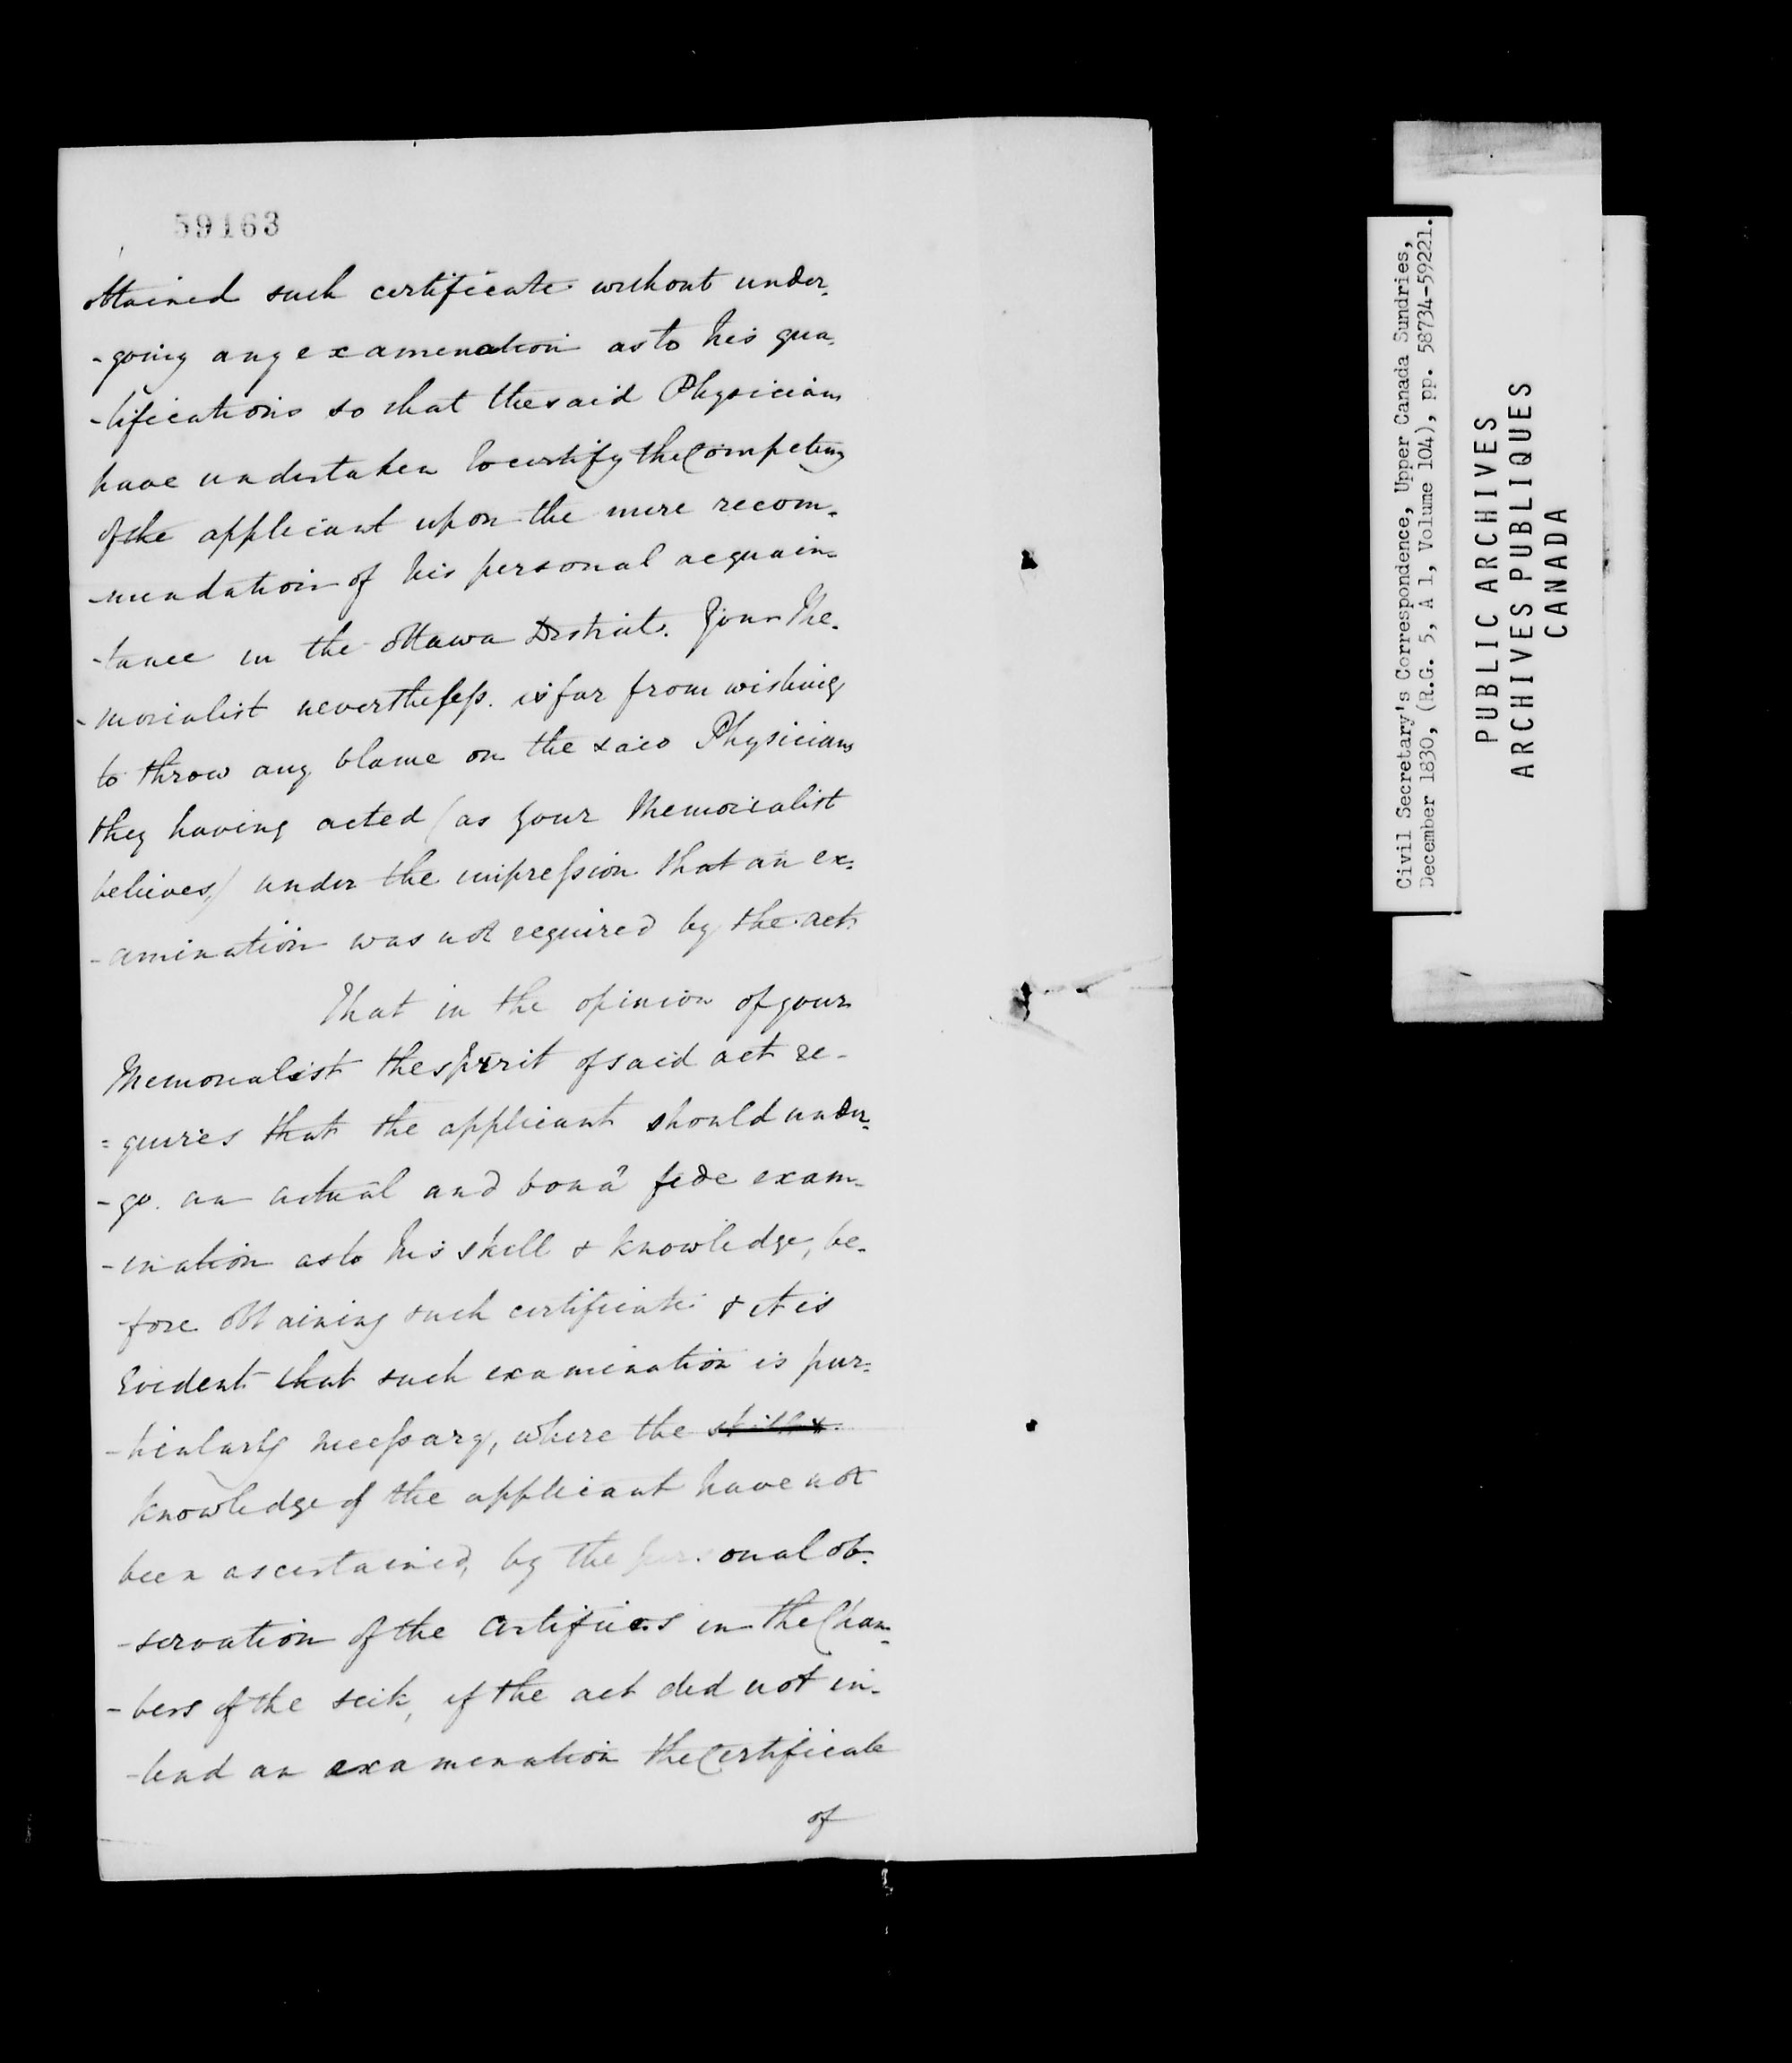 59163
obtained such certificate without under-
-going any examination as to his qua-
-lifications so that the said Physicians
have undertaken to certify the Competency
of the applicant upon the mere recom-
-mendation of his personal acquain-
-tance in the Ottawa District. Your Me-
-morialist nevertheless. is far from wishing
to throw any blame on the said Physicians
they having acted (as your Memorialist
believes,) under the impression that an ex-
-amination was not required by the act.
That in the opinion of your
Memorialist the spirit of said act re-
=quires that the applicant should under-
-go. an actual and bonâ fide exam-
-ination as to his skill & knowledge, be-
-fore obtaining such certificate & it is
Evident that such examination is par-
-ticularly necessary, where the skill &
knowledge of the applicant have not
been ascertained, by the personal ob-
-servation of the Certifiers in the Cham-
-bers of the seik, if the act did not in-
-tend an examination the Certificate
of
Civil Secretary's Correspondence, Upper Canada Sundries,
December 1830, (R.G. 5, A 1, Volume 104), pp. 58734-59221.
PUBLIC ARCHIVES
ARCHIVES PUBLIQUES
CANADA